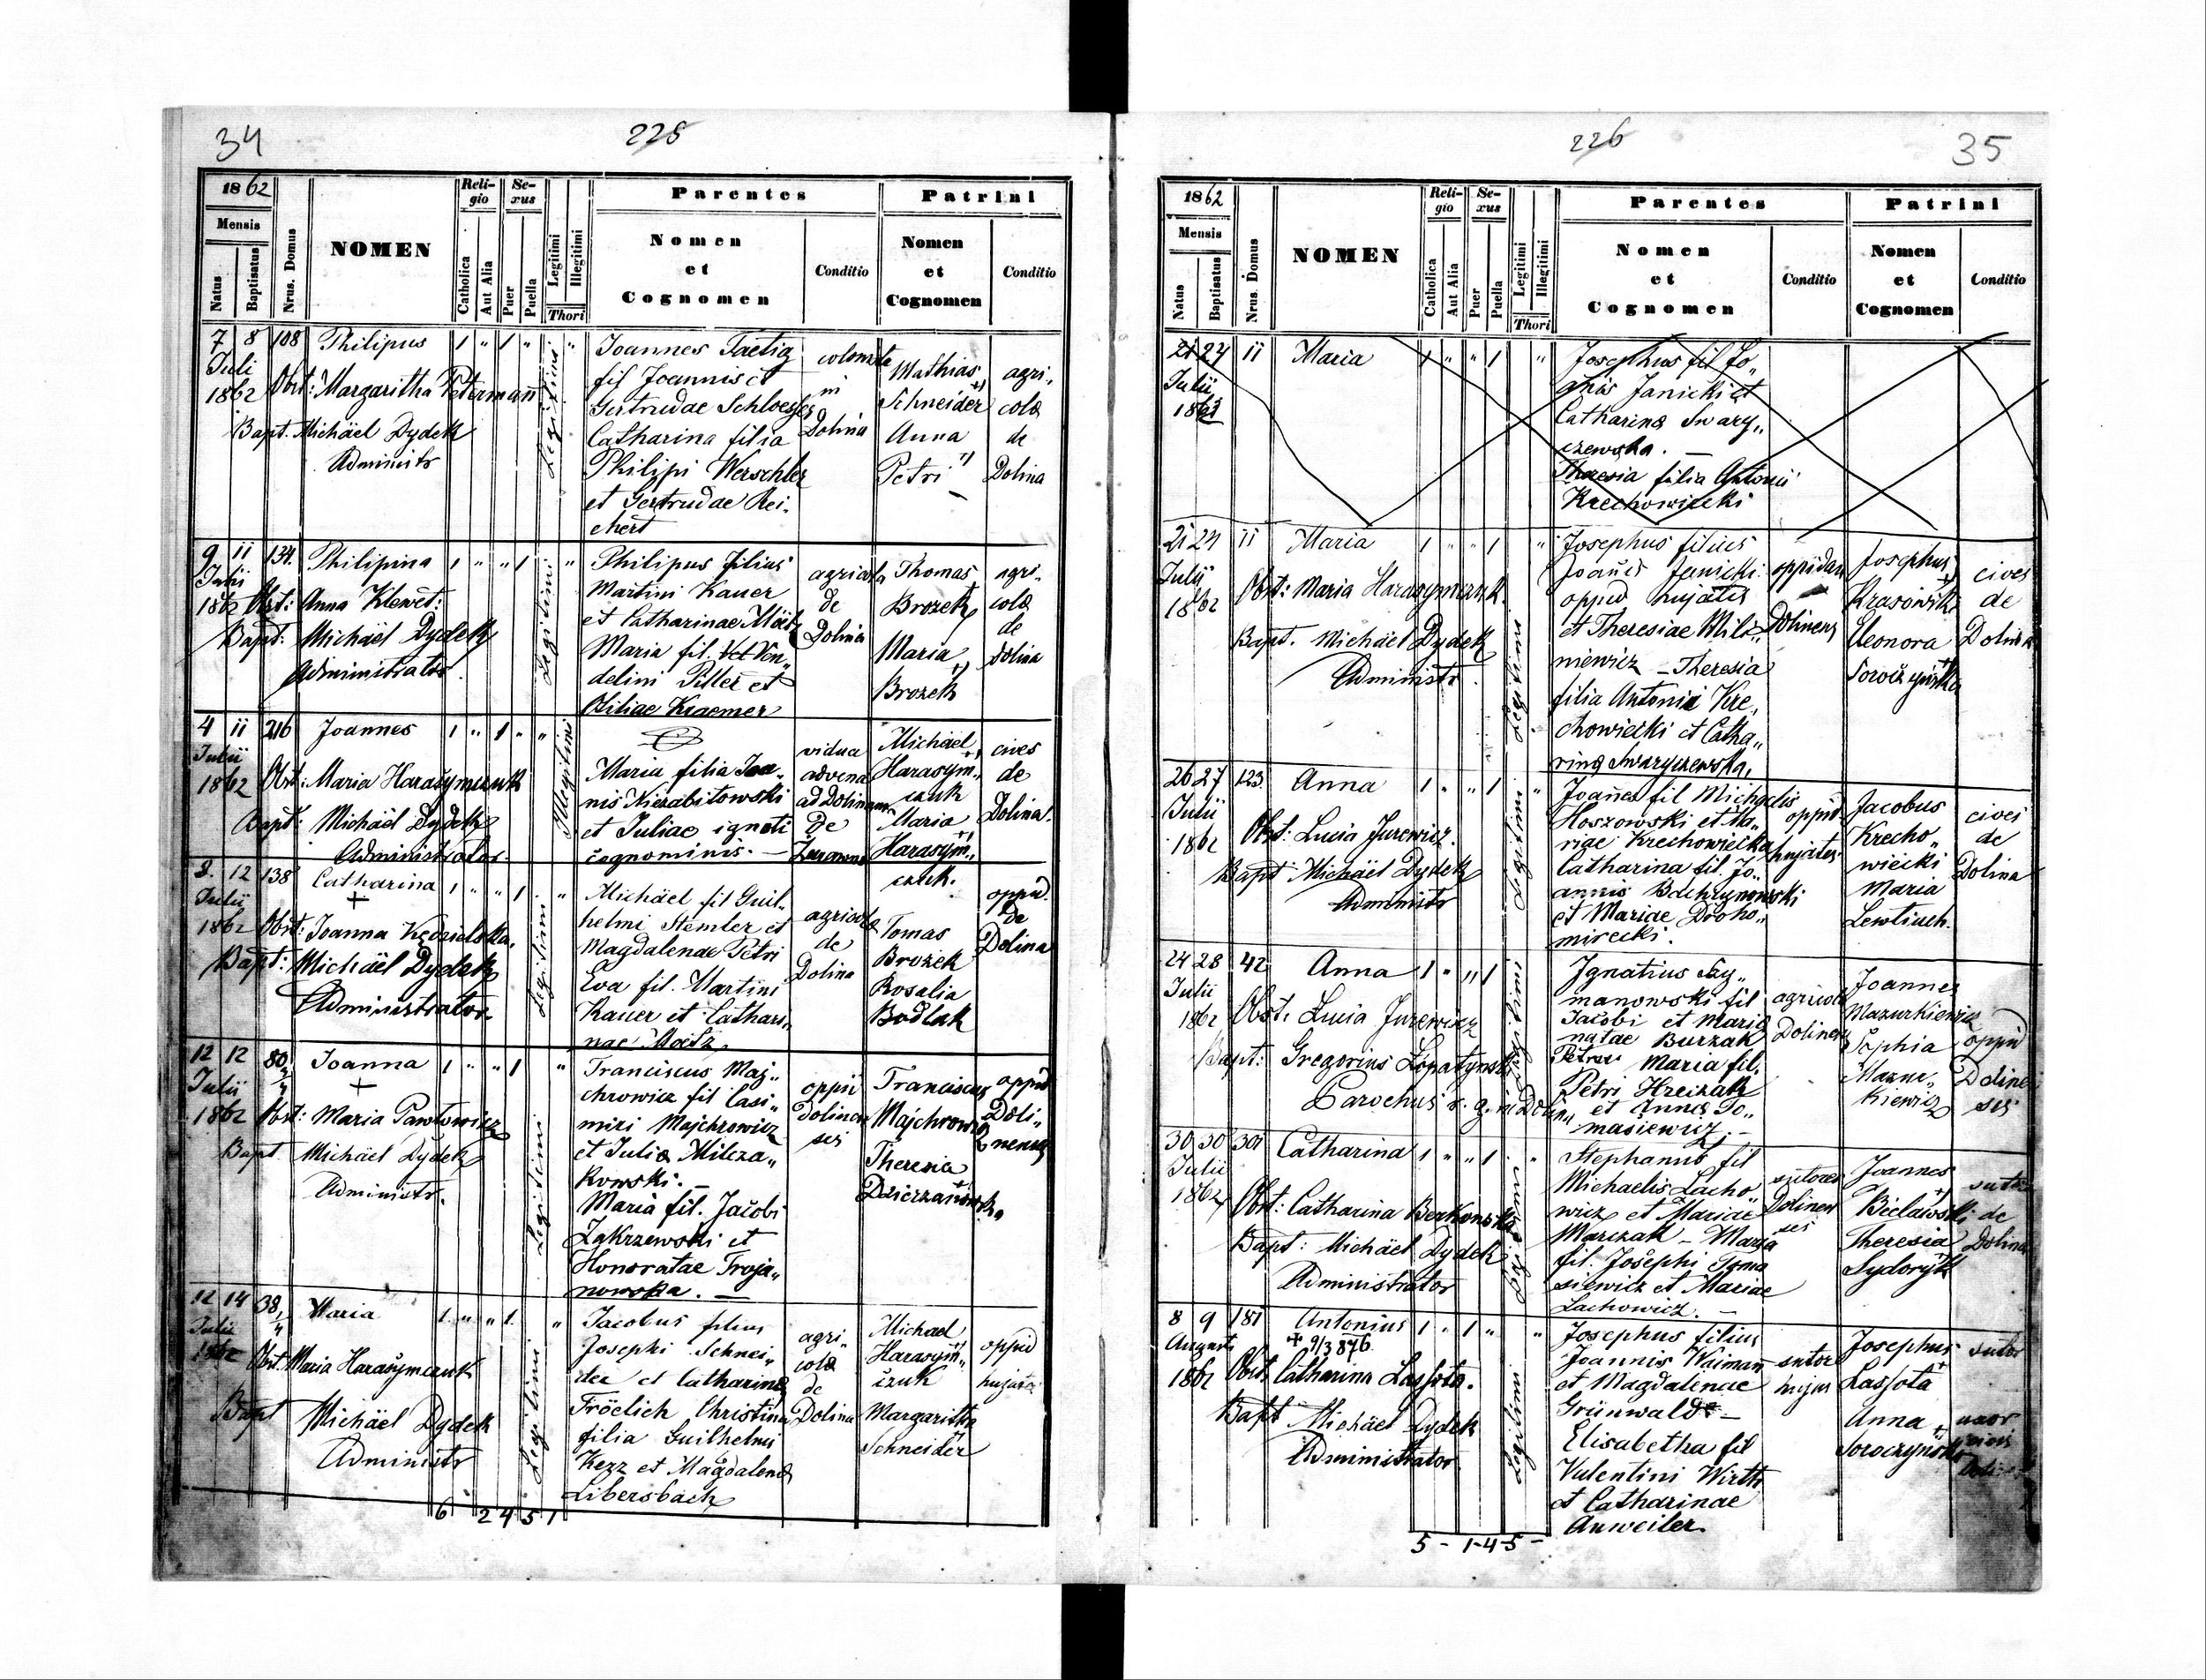 34
225
1862
Mensis
Natus
Baptisatus
Nrus. Domus
NOMEN
Reli-
gio
Catholica
Aut Alia
Se-
xus
Puer
Puella
Legitimi
Illegitimi
Thori
Parentes
Nomen
et
Cognomen
Conditio
Patrini
Nomen
et
Cognomen
Conditio
7 8 108 Philipus 1 " 1 " "
Juli
1862 Obst: Margaritha Peterman
Bapt. Michäel Dydek
Administr
Legitimi
Joannes Taetig
fil Joannis et
Gertrudae Schloesser
Catharina filia
Philipi Werschler
et Gertrudae Rei-
chert
in
Dolina
Mathias
Schneider
Anna
Petri
agri,,
cola
de
Dolina
9 11 134. Philipina 1 " " 1 "
Julii
1862 Obst: Anna Klewet:
Bapt: Michäel Dydek
Administrator
Legitimi
Philipus filius
Martini Kauer
et Catharinae Mätz
Maria fil. Vet Ven,,
delini Piller et
Otiliae Kraemer
agricola
de
Dolina
Thomas
Brozek
Maria
Brozek
agri-
cola
de
Dolina
4 11 216 Joannes 1 " 1 " "
Julii
1862 Obst: Maria Harasymczuk
Bapt: Michäel Dydek
Administrator.
Illegitimi
Maria filia Joa,,
nis Niezabitowski
et Juliae ignoti
cognominis. —
vidua
advena
ad Dolinam
de
Zurawno
Michäel
Harasym,,
czuk
Maria
Harasym,,
czuk.
cives
de
Dolina.
8. 12 138 Catharina 1 " " 1 "
Julii +
1862 Obst: Joanna Kędzielska.
Bapt: Michäel Dydek
Administrator.
Legitimi
Michäel fil Guil-
helmi Stemler et
Magdalenae Petri
Eva fil. Martini
Kauer et Cathari,,
nae Moetz.
agricola
de
Dolina
Tomas
Brożek
Rosalia
Bodlak
oppid.
de
Dolina
12 12 80 Joanna 1 " " 1 "
Julii +
1862 Obst: Maria Pawłowicz
Bapt Michäel Dydek
Administr.
Legitimi
Franciscus Maj,,
chrowicz fil Casi,,
miri Majchrowicz
et Julia Milcza,,
kowski. —
Maria fil. Jacobi
Zakrzewski et
Honoratae Troja,,
nowska. —
oppii
Dolinen
ses
Franciscus
Majchrowicz
Theresia
oppid
Doli-
nenses
12 14 38, Maria 1 " " 1 "
Julii
1862 Obst: Maria Harasymczuk
Bapt Michäel Dydek
Administr
Legitimi
Jacobus filius
Josephi Schnei,,
der et Catharina
Fröelich Christina
filia Guilhelmi
Kezz et Magdalena
Libersbach
agri,,
cola
de
Dolina
Michael
Harasym,,
czuk
Margaritha
Schneider
oppid
hujates
6 2 4 5 1
226
35
1862
Mensis
Natus
Baptisatus
Nrus. Domus
NOMEN
Reli-
gio
Catholica
Aut Alia
Se-
xus
Puer
Puella
Legitimi
Illegitimi
Thori
Parentes
Nomen
et
Cognomen
Conditio
Patrini
Nomen
et
Cognomen
Conditio
21 24 11 Maria 1 " " 1 "
Julii
1862
Josephus fil Jo,,
nis Janicki et
Catharina Swary,,
czewska. —
Theresia filia Antonii
Krechowiecki
21 24 11 Maria 1 " " 1 "
Julii
1862 Obst: Maria Harasymczuk.
Bapt. Michäel Dydek
Administr.
Legitimi
Josephus filius
Joanis Janicki
oppid hujatis
et Theresiae Mili,,
niewicz — Theresia
filia Antonii Kre,
chowiecki et Catha,,
rina Swaryczewska,
oppidan
Dolinens
Josephus
Krasowski
Eleonora
cives
de
Dolina
26 27 123. Anna 1 " " 1 "
Julii
1862 Obst: Lucia Jurewicz.
Bapt Michäel Dydek
Administr
Legitimi
Joanes fil Michaelis
Hoszowski et Ma,,
riae Krechowiecka
Catharina fil. Jo,,
annis Bachrynowski
et Mariae Droho,,
mirecki.
oppid.
hujates
Jacobus
Krecho,,
wiecki
Maria
Lewtiuch.
cives
de
Dolina
24 28 42 Anna 1 " " 1
Julii
1862 Obst. Lucia Jurewicz
Bapt: Gregorius Łopatynski
Parochus r. g. in Dolina
Legitimi
Ignatius Szy,,
manowski fil
Jacobi et Maria
natae Burzak
Petrus Maria fil.
Petri Hreczak
et Annis To,,
masiewicz. —
agricola
Dolinen
Joannes
Mazurkiewicz
Sophia
Mazur,,
kiewicz
oppid
Dolinen
ses
30 30 301 Catharina 1 " " 1 "
Julii
1862 Obst: Catharina Berkowska
Bapt: Michäel Dydek
Administrator
Legitimi
Stephanus fil
Michaelis Lacho,,
wicz et Mariae
Marczak — Maria
fil. Josephi Toma
siewicz et Mariae
Lachowicz. —
sutores
Dolinen
ses
Joannes
Bielawski
Theresia
Sydoryk
sutor
de
Dolina
8 9 181 Antonius 1 " 1 " "
Augusti + 9/3 876.
1862 Obst: Catharina Lassota.
Bapt Michäel Dydek
Administrator
Legitimi
Josephus filius
Joannis Waiman
et Magdalenae
Grünwald —
Elisabetha fil
Valentini Wirth
et Catharinae
Anweiler.
sutor
hujas
Josephus
Lassota
Anna
Soroczynska
sutor
uxor
civis
5 - 1 - 4 - 5 -